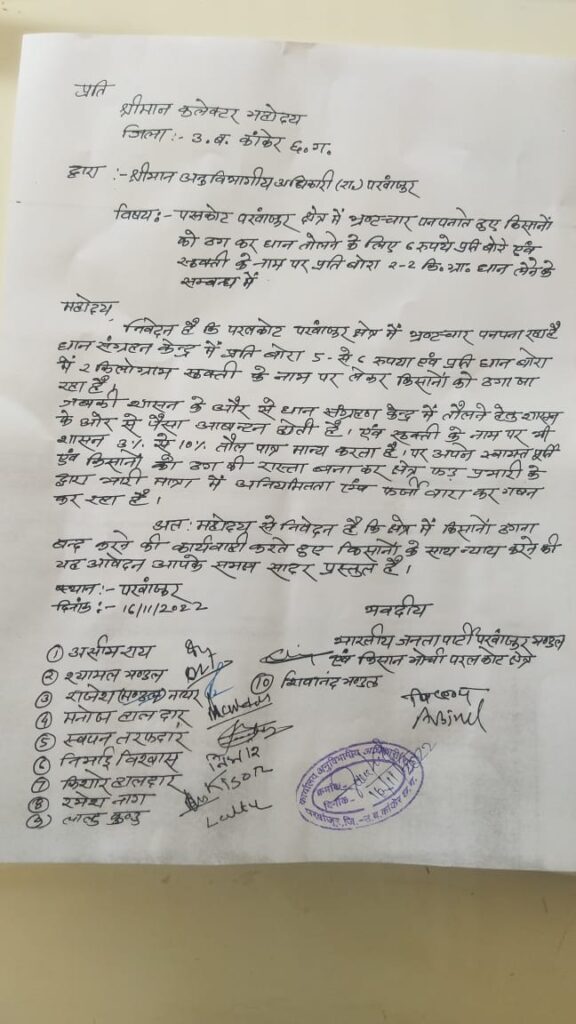 प्रति
श्रीमान कलेक्टर महोदय
जिला :- उ.ब. कांकेर छ.ग.
द्वारा :- श्रीमान अनुविभागीय अधिकारी (रा.) पखांजूर
विषय :- परलकोट पखांजूर क्षेत्र में भ्रष्टाचार पनपनाते हुए किसानों
को ठग कर धान तौलने के लिए 6 रुपये प्रति बोरे एवं
सुक्ती के नाम पर प्रति बोरा 2-2 कि.ग्रा. धान लेने के
सम्बन्ध में
महोदय,
निवेदन है कि परलकोट पखांजूर क्षेत्र में भ्रष्टाचार पनपना रहा है
धान संग्रहन केन्द्र में प्रति बोरा 5 - से 6 रुपया एवं प्रति धान बोरा
में 2 किलोग्राम सुक्ती के नाम पर लेकर किसानों को ठगा जा
रहा है।
जबकी शासन के और से धान संग्रहण केन्द्र में तौलने हेतु शासन
के ओर से पैसा आबन्टन होती है। एवं सुक्ती के नाम पर भी
शासन 3% से 10% तौल पात्र मान्य करता है। पर अपने स्वार्थ पूर्ति
एवं किसानों को ठग की रास्ता बना कर क्षेत्र फड़ प्रभारी के
द्वारा भारी मात्रा में अनियमितता एवं फर्जी वारा कर गबन
कर रहा है।
अतः महोदय से निवेदन है कि क्षेत्र में किसानों ठगना
बन्द करने की कार्यवाही करते हुए किसानों के साथ न्याय करने की
यह आवेदन आपके समक्ष सादर प्रस्तुत है।
स्थान :- पखांजूर
दिनांक :- 16/11/2022
भवदीय
भारतीय जनता पार्टी पखांजूर मण्डल
एवं किसान मोर्चा परलकोट क्षेत्र
① असीम राय
② श्यामल मण्डल
③ राजेश (मण्डल) नाथ
④ मनोज हालदार
⑤ स्वपन तरफदार
⑥ निमाई विश्वास
⑦ किशोर हालदार
Kison
⑧ रमेश नाग
⑨ लाल्टु कुन्डु
Laltu
⑩ शिवानंद मण्डल
कार्यालय अनुविभागीय अधिकारी
क्रमांक
दिनांक- 16/11/2022
पखांजूर, जि.-उ.ब.कांकेर छ.ग.